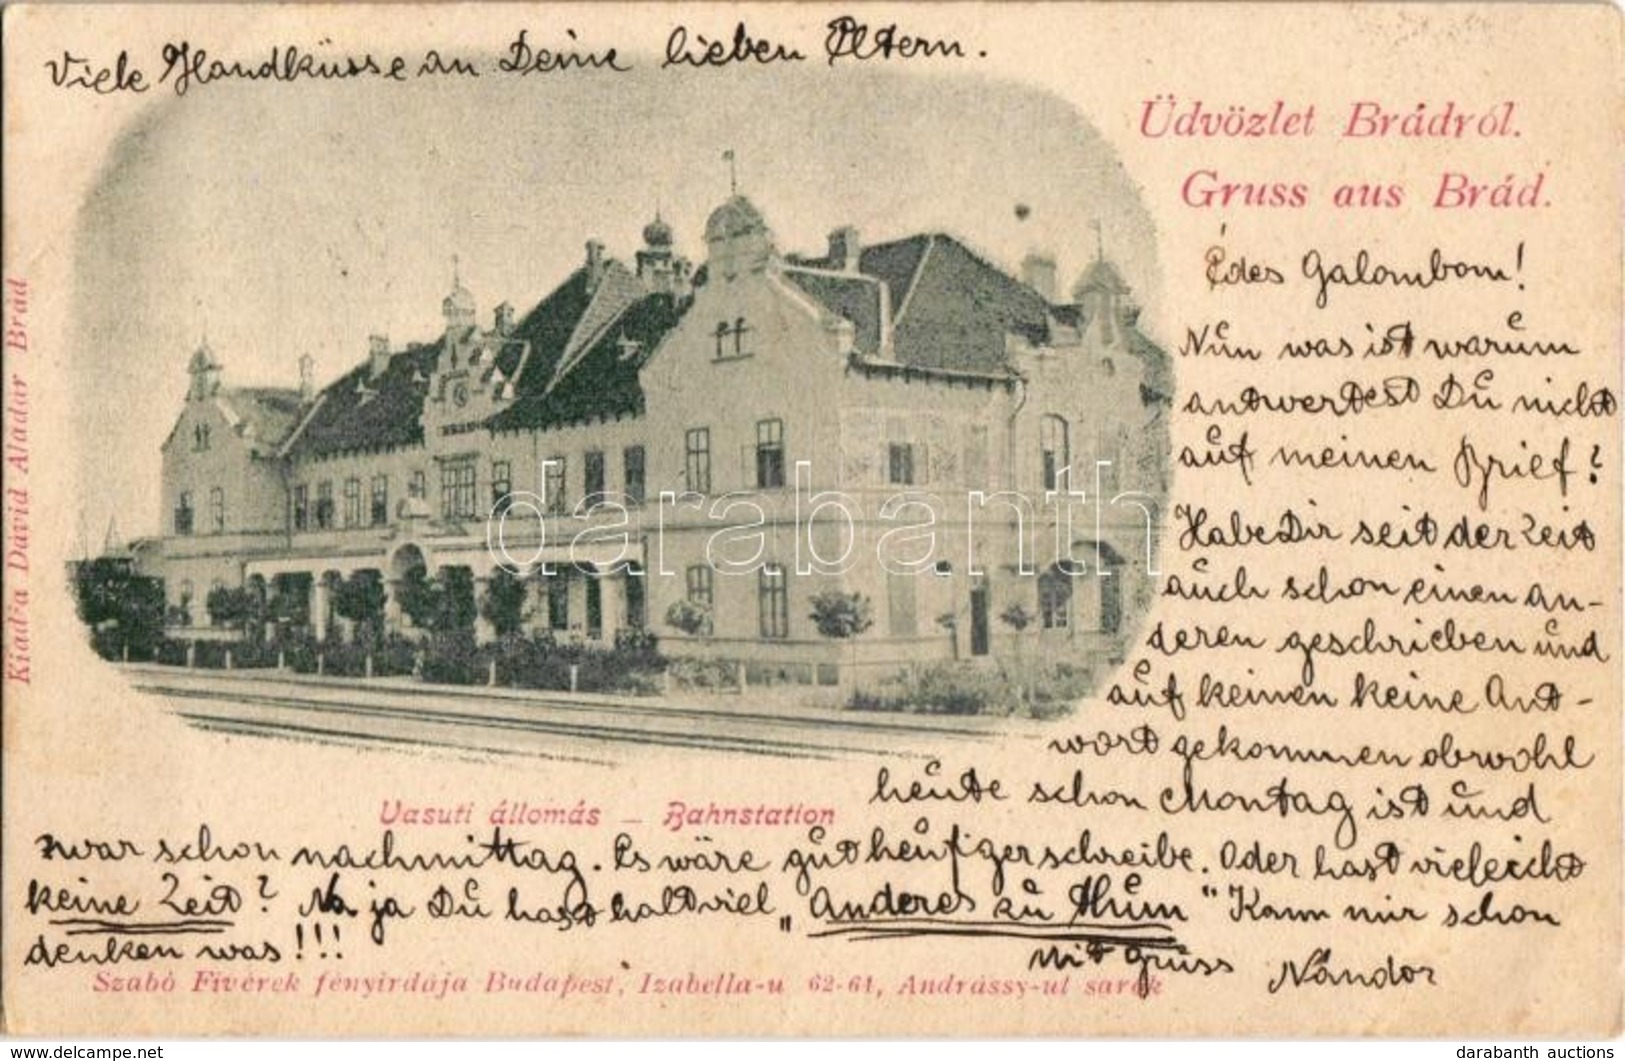 Viele Handküsse an Deine lieben Eltern.
Üdvözlet Brádról.
Gruss aus Brád.
Édes Galambom!
Nun was ist warum
antwortest Du nicht
auf meinen Brief?
Habe Dir seit der Zeit
auch schon einen an-
deren geschrieben und
auf keinen keine Ant-
wort gekommen obwohl
heute schon Montag ist und
zwar schon nachmittag. Es wäre gut heufiger schreibe. Oder hast vieleicht
keine Zeit? Na ja Du hast halt viel „Anderes zu thun" Kann mir schon
denken was!!!
mit Gruss Nándor
Vasuti állomás — Bahnstation
Szabó Fivérek fényirdája Budapest, Izabella-u 62-64, Andrássy-ut sarok
Kiadta Dávid Aladár Brád
darabanth
darabanth auctions
www.delcampe.net/en